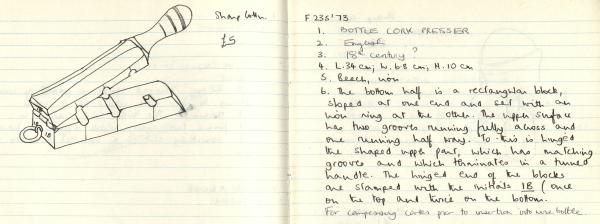 £5
F 235'73
1. BOTTLE CORK PRESSER
2. English
3. 18th century ?
4. L.34 cm; W. 6.8 cm; H. 10 cm
5. Beech, iron
6. The bottom half is a rectangular block,
sloped at one end and set with an
iron ring at the other. The upper surface
has two grooves running fully across and
one running half way. To this is hinged
the shaped upper part, which has matching
grooves and which terminates in a turned
handle. The hinged end of the blocks
are stamped with the initials IB (once
on the top and twice on the bottom.
For compressing corks prior to insertion into wine bottle.
IB
IB